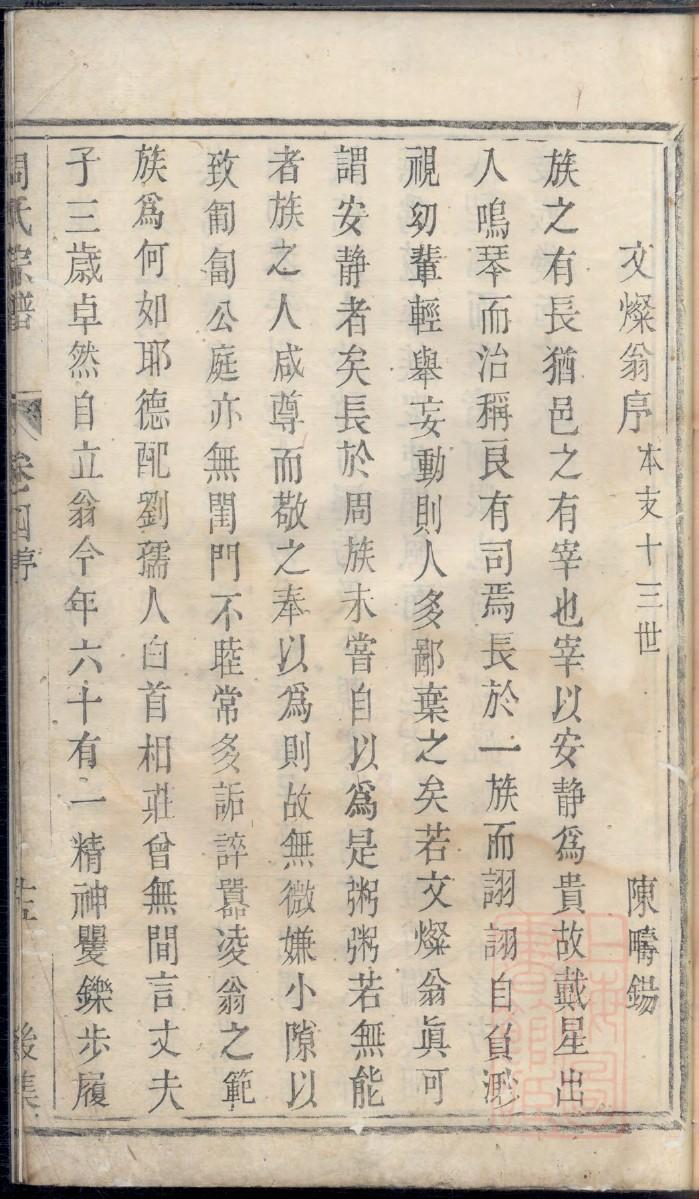 文燦翁序 本支十三世 陳疇錫
族之有長猶邑之有宰也宰以安静爲貴故戴星出
入鳴琴而治稱良有司焉長於一族而詡詡自負渺
視幼輩輕舉妄動則人多鄙棄之矣若文燦翁眞可
謂安静者矣長於周族未嘗自以爲是粥粥若無能
者族之人咸尊而敬之奉以爲則故無微嫌小隙以
致匍匐公庭亦無閨門不睦常多詬誶囂凌翁之範
族爲何如耶德配劉孺人白首相莊曾無間言丈夫
子三歳卓然自立翁今年六十有一精神矍鑠步履
周氏宗譜 卷四序 十五 後集